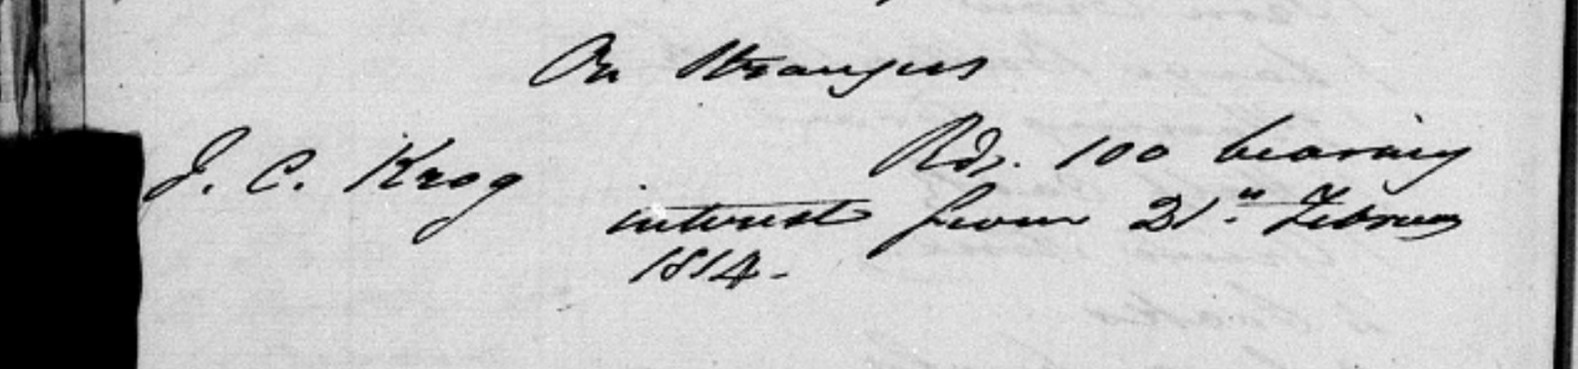 On Strangers
J. C. Krog Rds. 100 bearing
interest from 21" February
1814.-